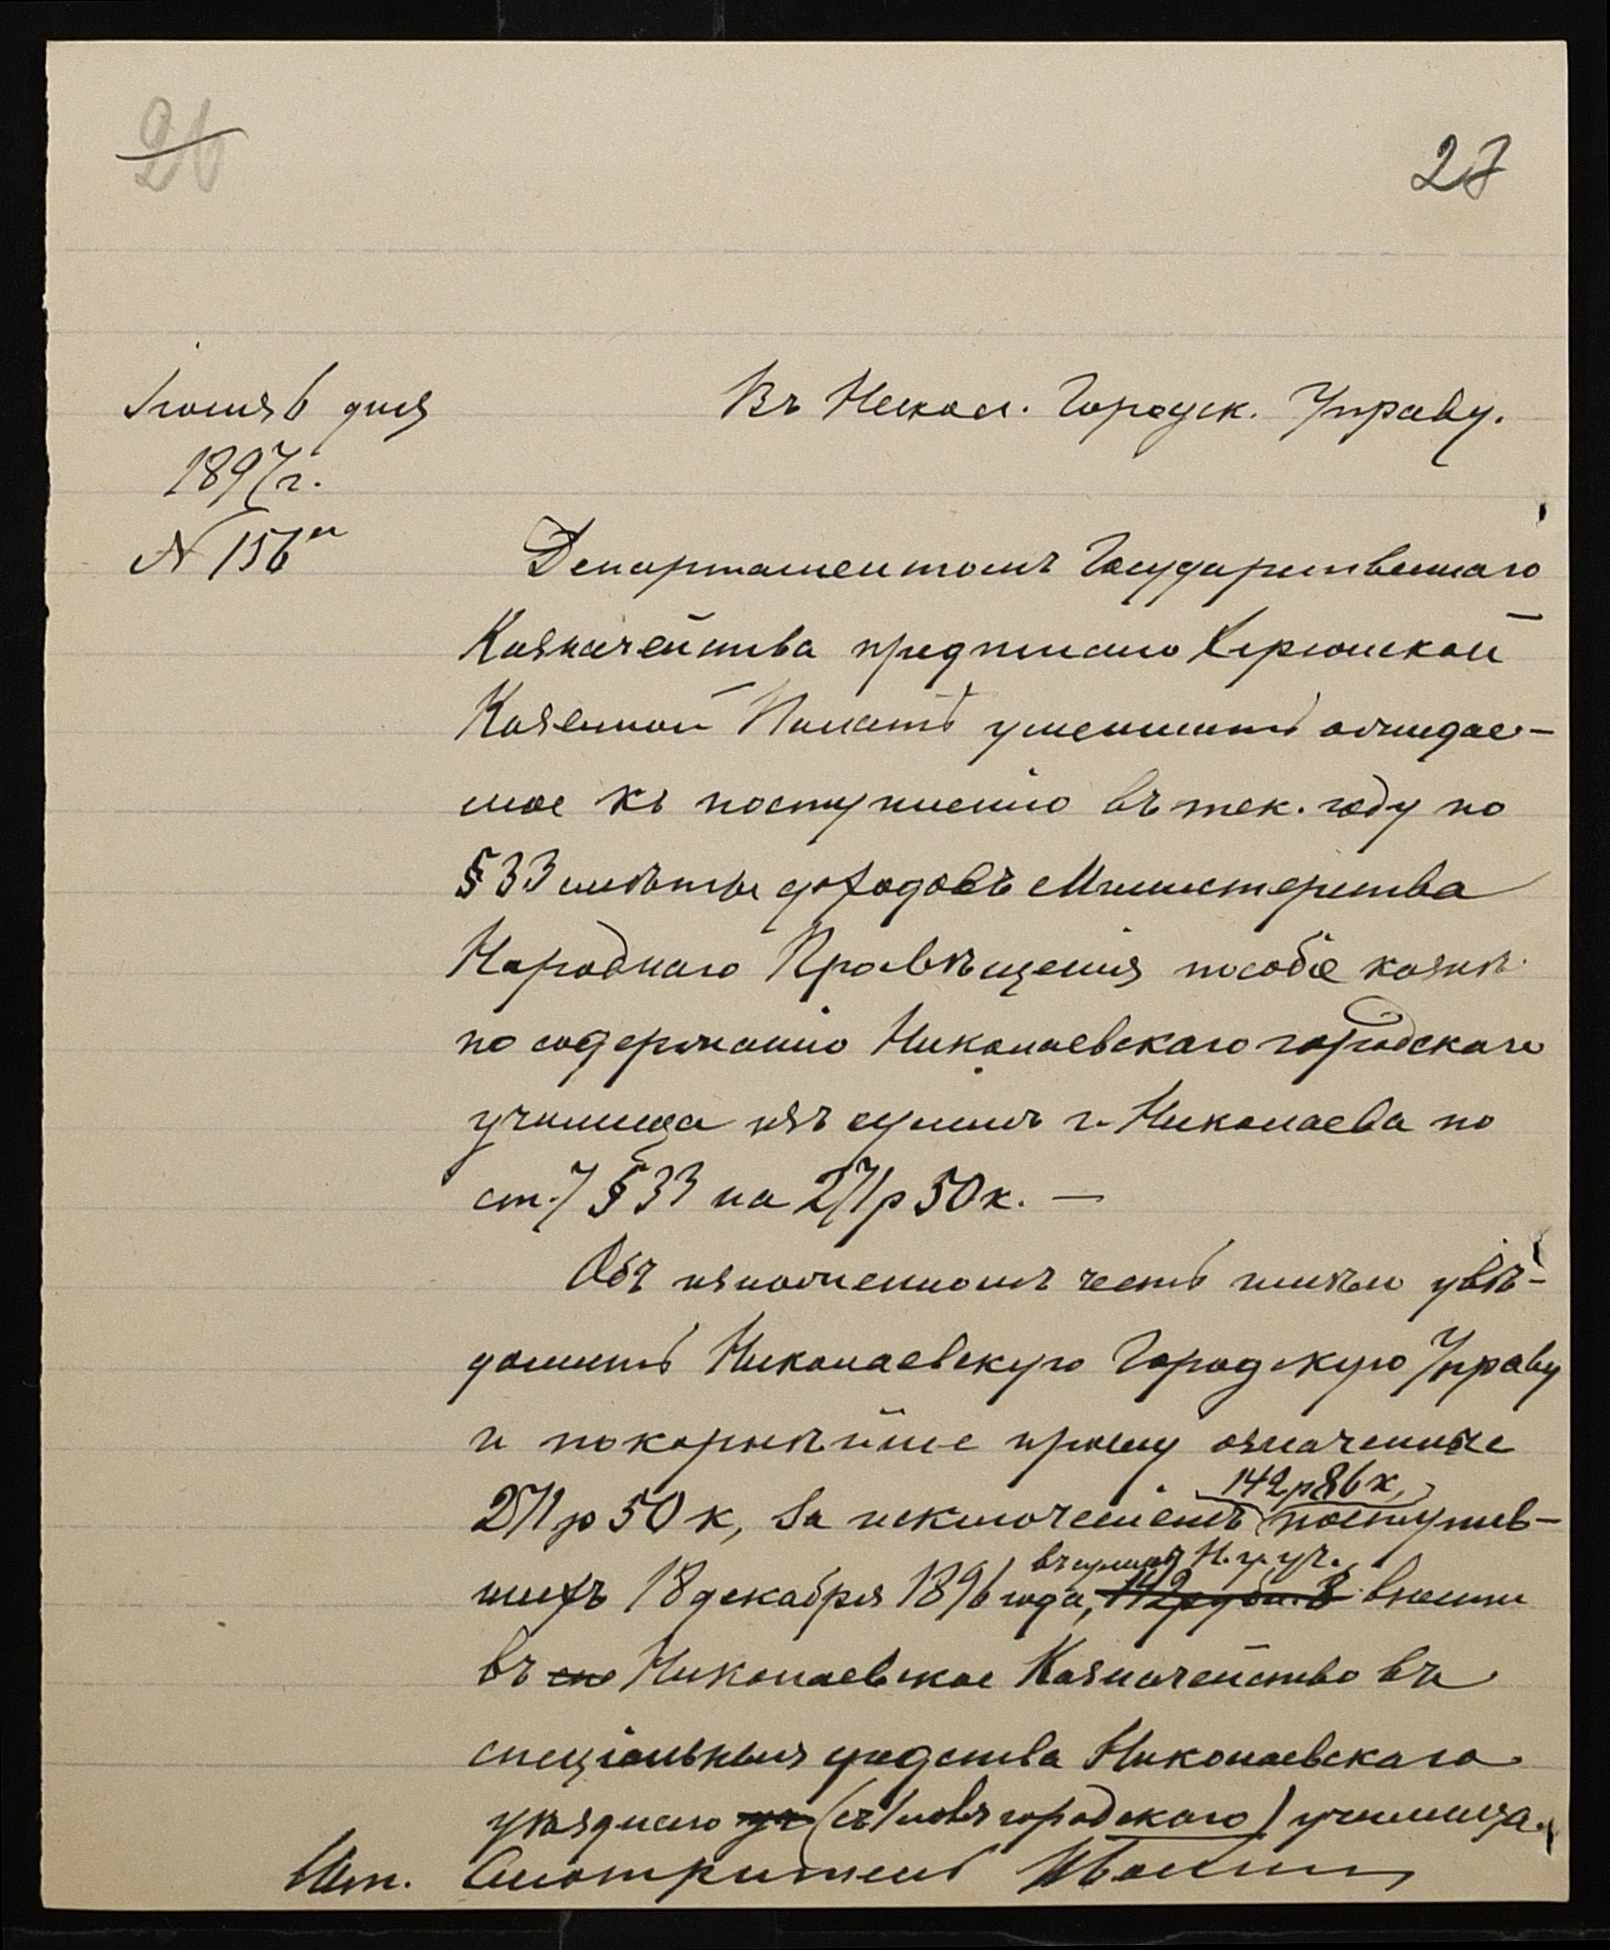 26
27
Іюня 6 дня
1897 г.
№ 156
Въ Никол. Городск. Управу.
Департаментомъ Государственнаго
Казначейства предписано Херсонской
Казенной Палатѣ уменьшить ожидае-
мое къ поступленію въ тек. году по
§ 33 смѣты доходовъ Министерства
Народнаго Просвѣщенія пособіе казнѣ
по содержанію Николаевскаго городскаго
училища изъ суммъ г. Николаева по
ст. 7 § 33 на 271 р 50 к. —
Объ изложенномъ честь имѣю увѣ-
домить Николаевскую Городскую Управу
и покорнѣйше прошу означенные
271 р 50 к, за исключеніемъ 142 р 86 к, поступив-
шихъ 18 декабря 1896 года, въ сумму Н. у. уч. 142 рубл. 8 внести
въ Николаевское Казначейство въ
спеціальныя средства Николаевскаго
уѣзднаго уч (съ 1 новя городскаго) училища.
Шт. Смотритель